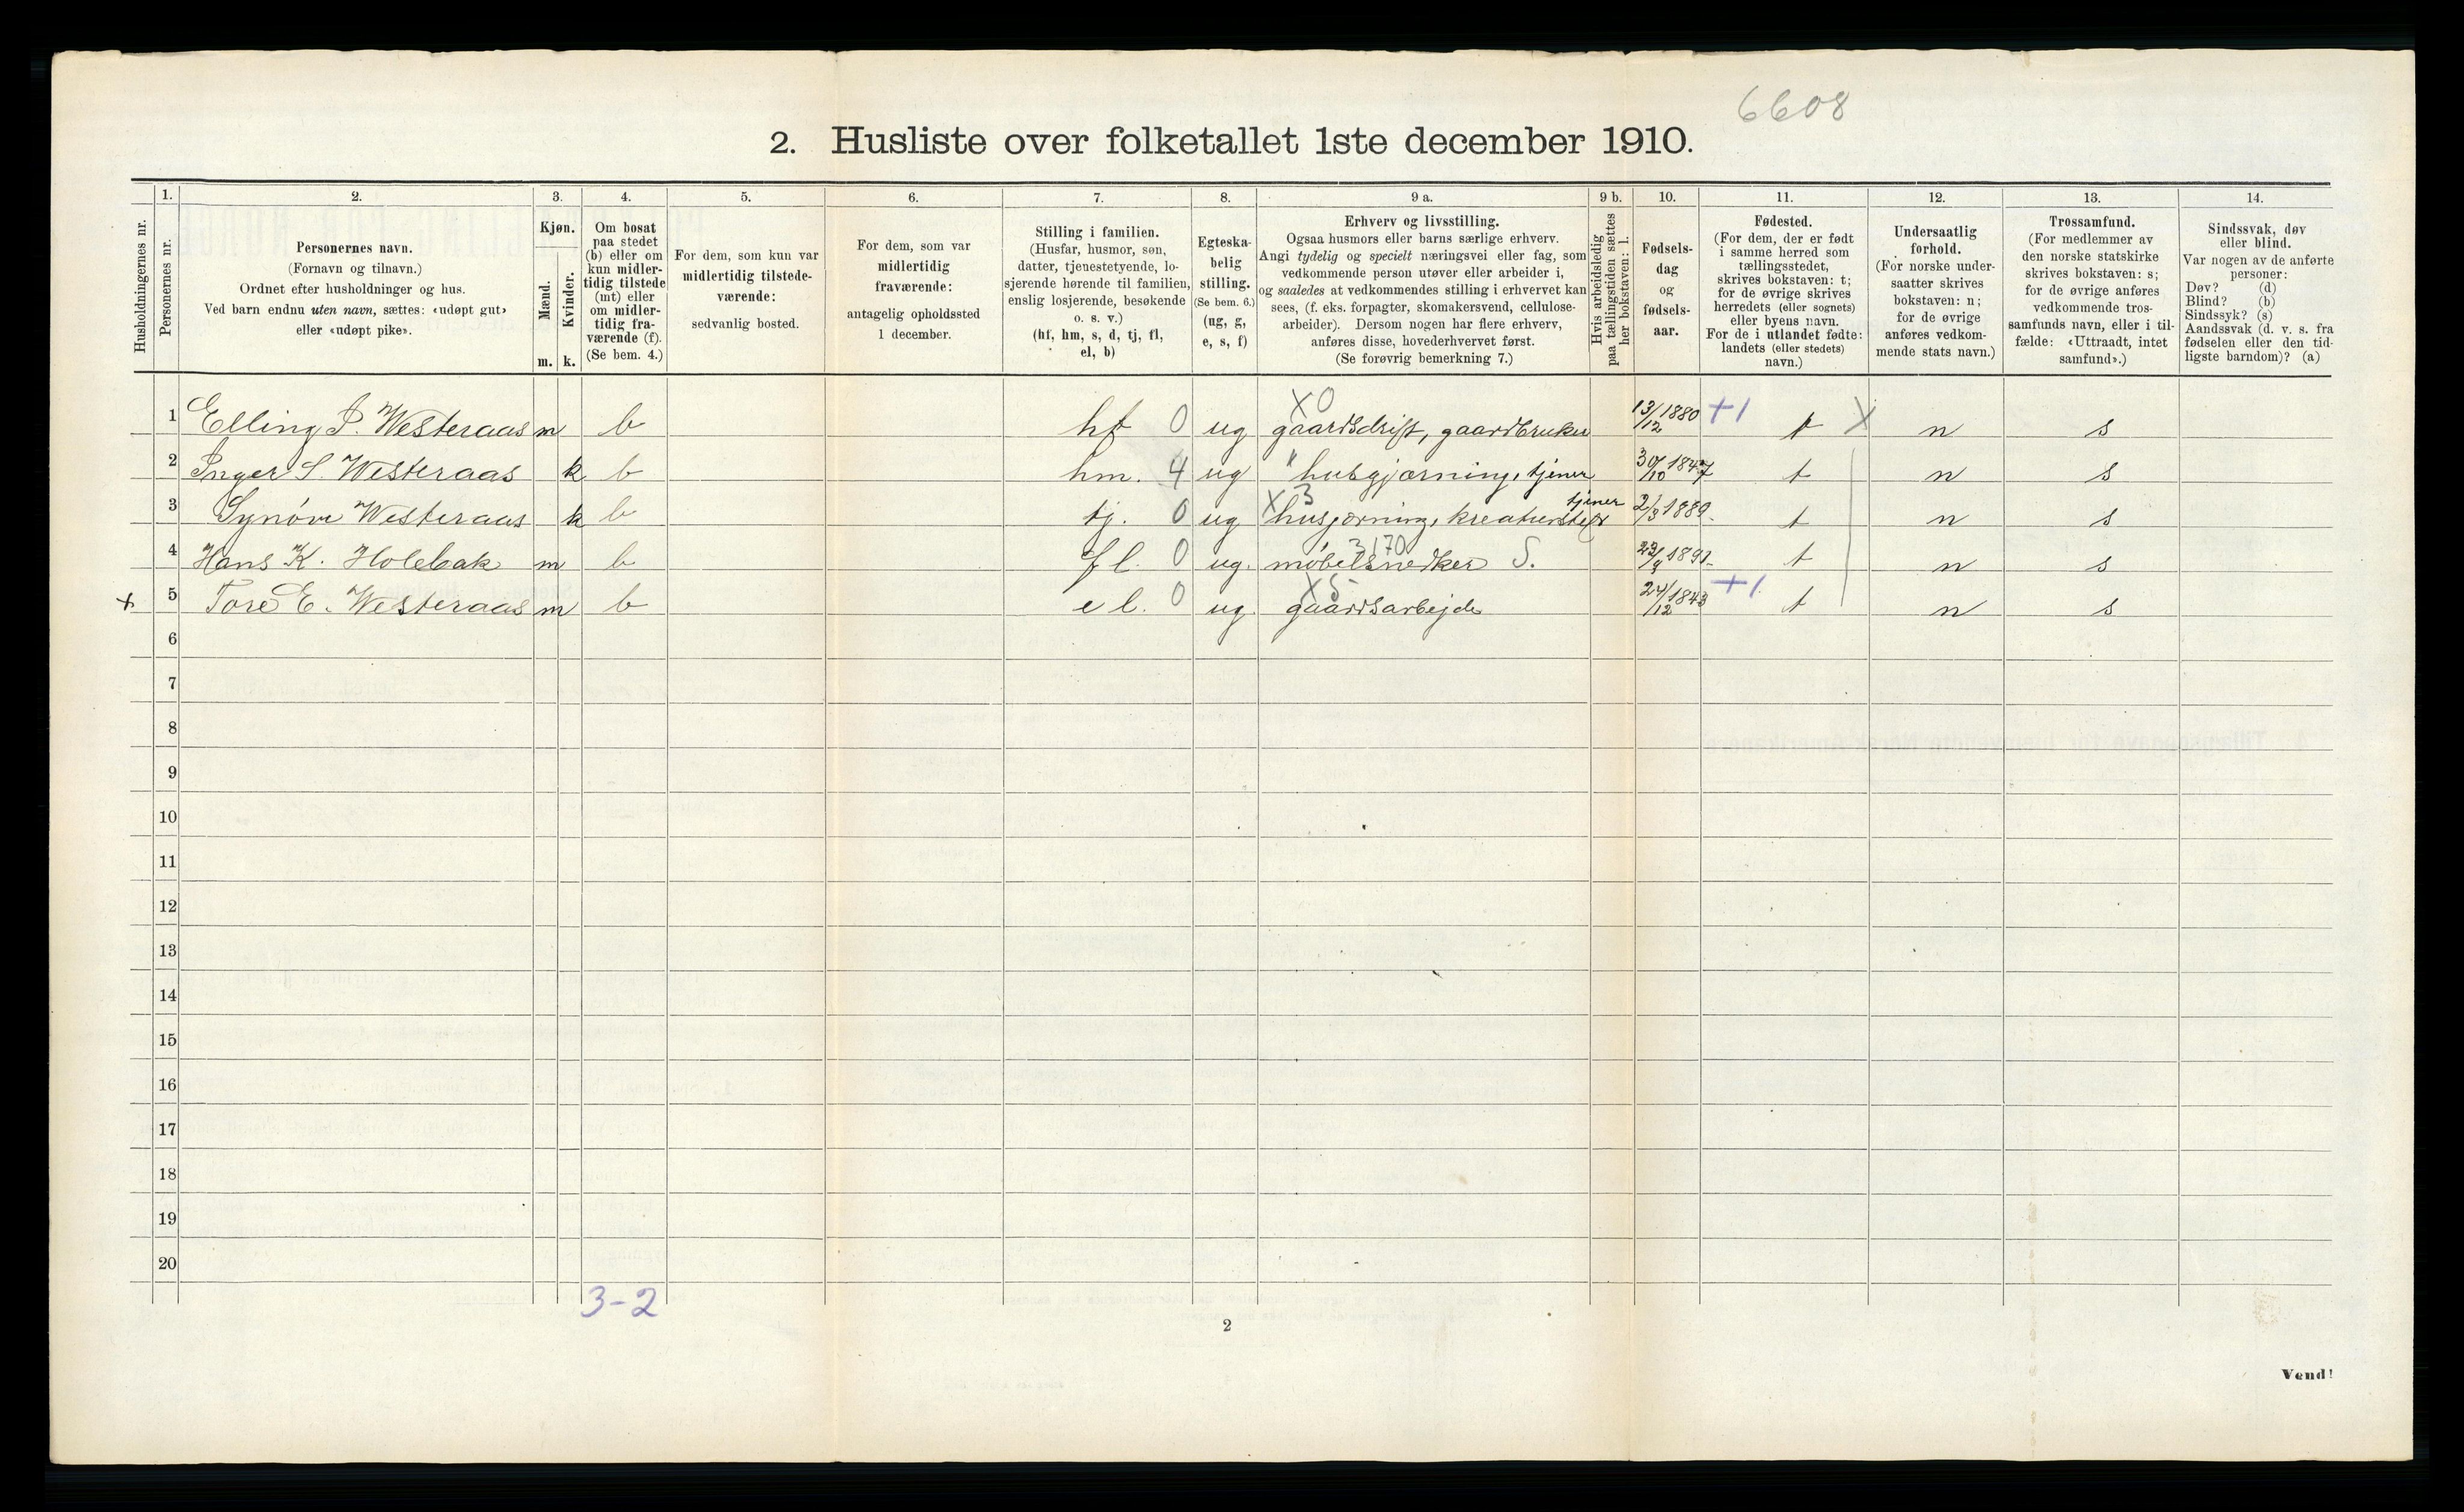 6608
2. Husliste over folketallet 1ste december 1910.
Husholdningernes nr.
1. Personernes nr.
2. Personernes navn.
(Fornavn og tilnavn.)
Ordnet efter husholdninger og hus.
Ved barn endnu uten navn, sættes: «udøpt gut»
eller «udøpt pike».
3. Kjøn.
Mænd. m.
Kvinder. k.
4. Om bosat
paa stedet
(b) eller om
kun midler-
tidig tilstede
(mt) eller
om midler-
tidig fra-
værende (f).
(Se bem. 4.)
5. For dem, som kun var
midlertidig tilstede-
værende:
sedvanlig bosted.
6. For dem, som var
midlertidig
fraværende:
antagelig opholdssted
1 december.
7. Stilling i familien.
(Husfar, husmor, søn,
datter, tjenestetyende, lo-
sjerende hørende til familien,
enslig losjerende, besøkende
o. s. v.)
(hf, hm, s, d, tj, fl,
el, b)
8. Egteska-
belig
stilling.
(Se bem. 6.)
(ug, g,
e, s, f)
9 a. Erhverv og livsstilling.
Ogsaa husmors eller barns særlige erhverv.
Angi tydelig og specielt næringsvei eller fag, som
vedkommende person utøver eller arbeider i,
og saaledes at vedkommendes stilling i erhvervet kan
sees, (f. eks. forpagter, skomakersvend, cellulose-
arbeider). Dersom nogen har flere erhverv,
anføres disse, hovederhvervet først.
(Se forøvrig bemerkning 7.)
9 b. Hvis arbeidsledig
paa tællingstiden sættes
her bokstaven: l.
10. Fødsels-
dag
og
fødsels-
aar.
11. Fødested.
(For dem, der er født
i samme herred som
tællingsstedet,
skrives bokstaven: t;
for de øvrige skrives
herredets (eller sognets)
eller byens navn.
For de i utlandet fødte:
landets (eller stedets)
navn.)
12. Undersaatlig
forhold.
(For norske under-
saatter skrives
bokstaven: n;
for de øvrige
anføres vedkom-
mende stats navn.)
13. Trossamfund.
(For medlemmer av
den norske statskirke
skrives bokstaven: s;
for de øvrige anføres
vedkommende tros-
samfunds navn, eller i til-
fælde: «Uttraadt, intet
samfund».)
14. Sindssvak, døv
eller blind.
Var nogen av de anførte
personer:
Døv? (d)
Blind? (b)
Sindssyk? (s)
Aandssvak (d. v. s. fra
fødselen eller den tid-
ligste barndom)? (a)
X0
1 Elling P. Westeraas m b hf 0 ug gaardsdrift, gaardbruker 13/12 1880 +1 t X n s
2 Inger S. Westeraas k b hm. 4 ug " husgjørning, tjener 30/10 1847 t n s
X 3 tjener
3 Synøve Westeraas k b tj. 0 ug husgjørning, kreaturstel 2/3 1889 t n s
170
4 Hans K. Holebak m b fl. 0 ug. møbelsnedker S. t n s
X 5
x 5 Tore E. Westeraas m b el. 0 ug. gaardsarbejde 24/12 1843 +1. t n s
6
7
8
9
10
11
12
13
14
15
16
17
18
19
20
3-2
2
Vend!